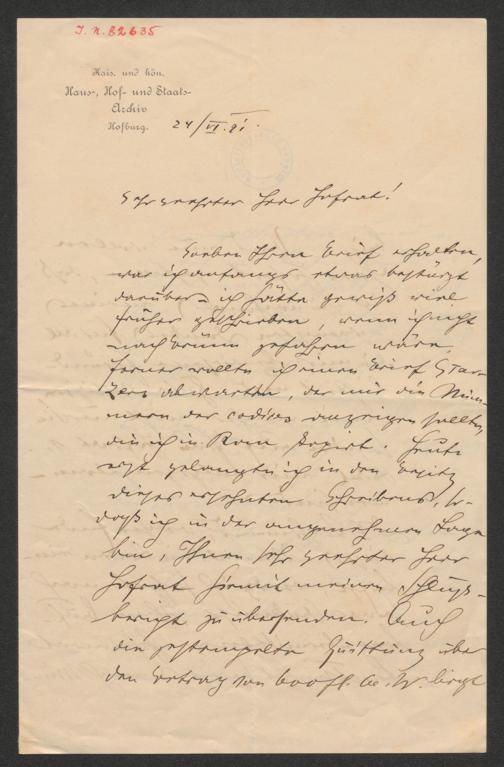 J. N. 82635
Kais. und kön.
Haus-, Hof- und Staats-
Archiv
Hofburg.
24/VI. 91.
Sehr geehrter Herr Hofrat!
Soeben Ihren Brief erhalten,
war ich anfangs etwas bestürzt
darüber – ich hätte gewiß viel
früher geschrieben, wenn ich nicht
nach Brünn gefahren wäre,
ferner wollte ich einen Brief Star-
zers abwarten, der mir die Num-
mern der codices anzeigen sollte,
die ich in Rom . Heute
erst gelangte ich in den Besitz
dieses ersehnten Schreibens, so-
daß ich in der angenehmen Lage
bin, Ihnen sehr geehrter Herr
Hofrat hiemit meinen Schluß-
bericht zu übersenden. Auch
die gestempelte Quittung über
den Betrag von 600 fl. ö. W. liegt